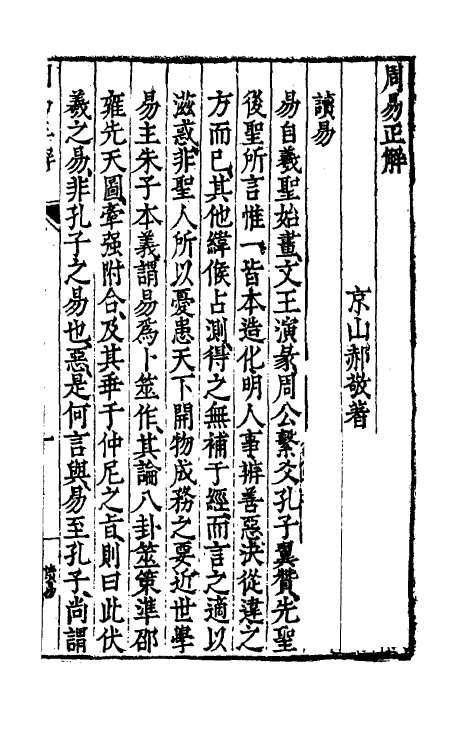 周易正解
京山郝敬著
讀易
易自羲聖始畫文王演彖周公繫爻孔子翼贊先聖
後聖所言惟一皆本造化明人事辨善惡決從違之
方而已其他緯候占測得之無補于經而言之適以
滋惑非聖人所以憂患天下開物成務之要近世學
易主朱子本義謂易為卜筮作其論八卦筮策準邵
雍先天圖牽强附合及其乖于仲尼之旨則曰此伏
羲之易非孔子之易也惡是何言與易至孔子尚謂
讀易
一